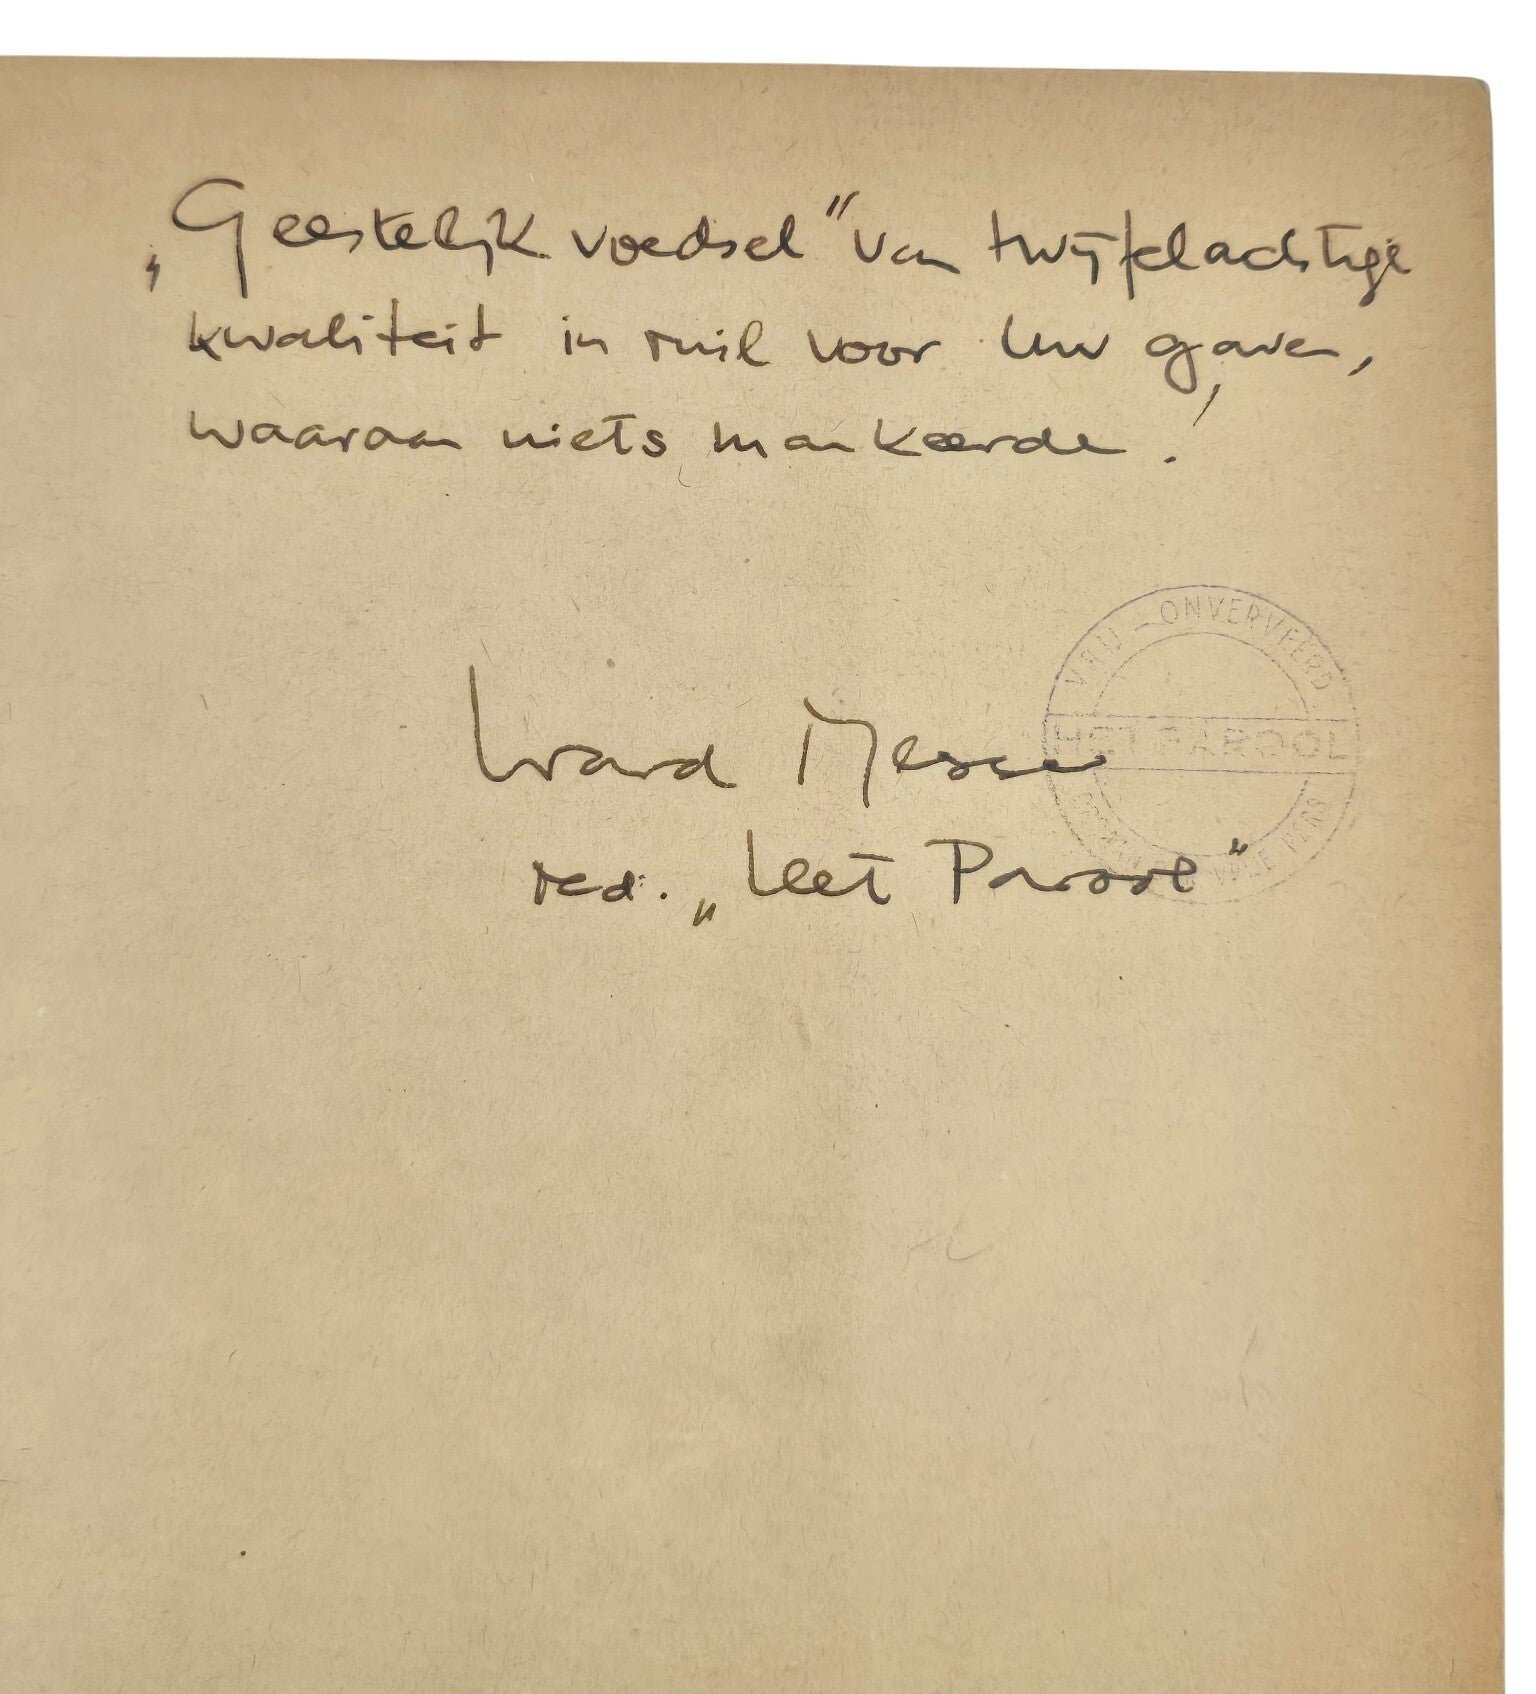 „Geestelijk voedsel" van twijfelachtige
kwaliteit in ruil voor Uw gaven,
waaraan niets mankeerde!
Ward Messer
red. „Het Parool"
VRIJ - ONVERVEERD
HET PAROOL
VRIJE